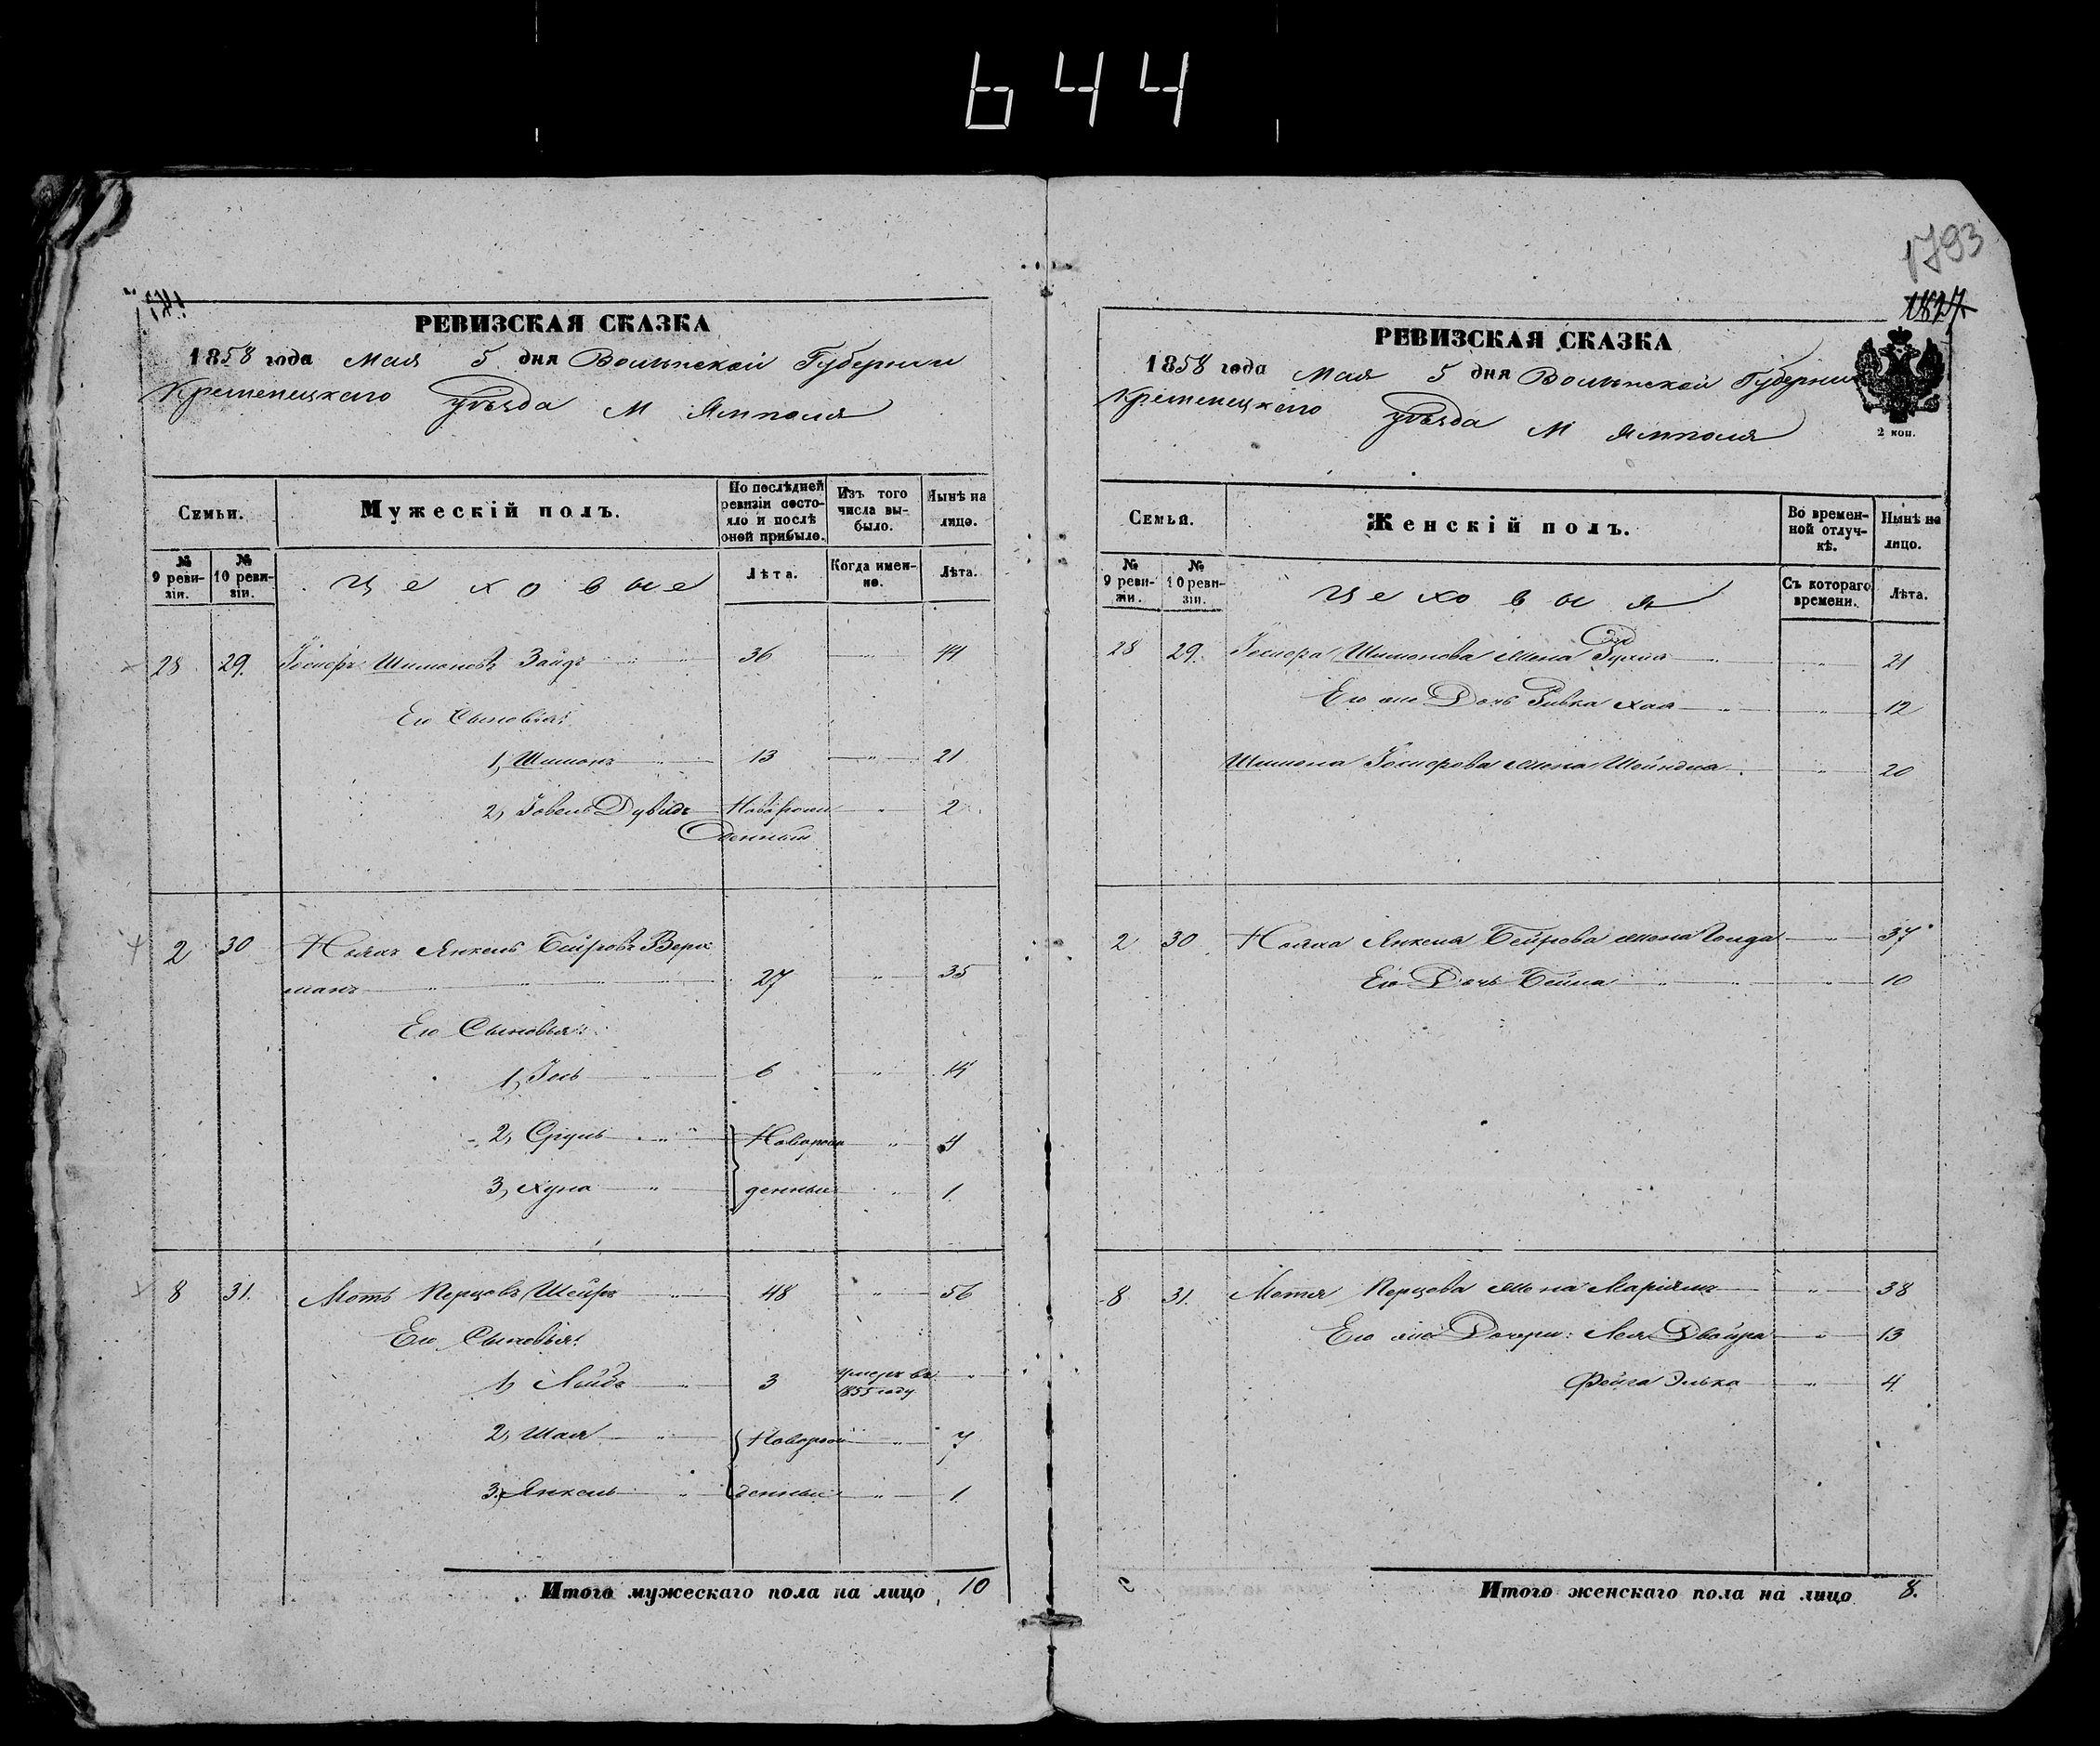 644
1793
1827
РЕВИЗСКАЯ СКАЗКА
1858 года Мая 5 дня Волынской Губернии
Кременецкаго уѣзда М Ямполя
Семьи.
Мужескій полъ.
По послѣдней ревизіи состояло и послѣ оной прибыло.
Изъ того числа выбыло.
Нынѣ на лицо.
№ 9 ревизіи.
№ 10 ревизіи.
Цеховые
Лѣта.
Когда именно.
Лѣта.
28 29. Шимоновъ Зайдъ 36 " 44
Его Сыновья:
1, Шимонъ 13 " 21
2, Дувидъ Новорож " 2
денный
2 30 Янкель Берх
манъ 27 " 35
Его Сыновья:
1, Іось 6 " 14
2, Сруль Новорож " 4
3, Хуна денные " 1.
8 31. Моть Перцовъ Шейръ 48 " 56
Его Сыновья:
1, Лейба 3 умеръ въ 1855 году "
2, Шая Новорож " 7
3, Янкель денные " 1.
Итого мужескаго пола на лицо 10
РЕВИЗСКАЯ СКАЗКА
1858 года Мая 5 дня Волынской Губерніи
Кременецкаго уѣзда М Ямполя
2 коп.
Семьи.
Женскій полъ.
Во временной отлучкѣ.
Нынѣ на лицо.
№ 9 ревизіи.
№ 10 ревизіи.
Цеховыя
Съ котораго времени.
Лѣта.
28 29. Шимонова жена Рухля " 21
Его же Дочь Ривка Хая " 12
Шимона жена Шейндля " 20
2 30 Янкеля жена Голда " 37
Его Дочь Бейла " 10
8 31. Мотя Перцова жена Маріямъ " 38
Его же Дочери: Лея Двойра " 13
Фейга Элька " 4
Итого женскаго пола на лицо 8.